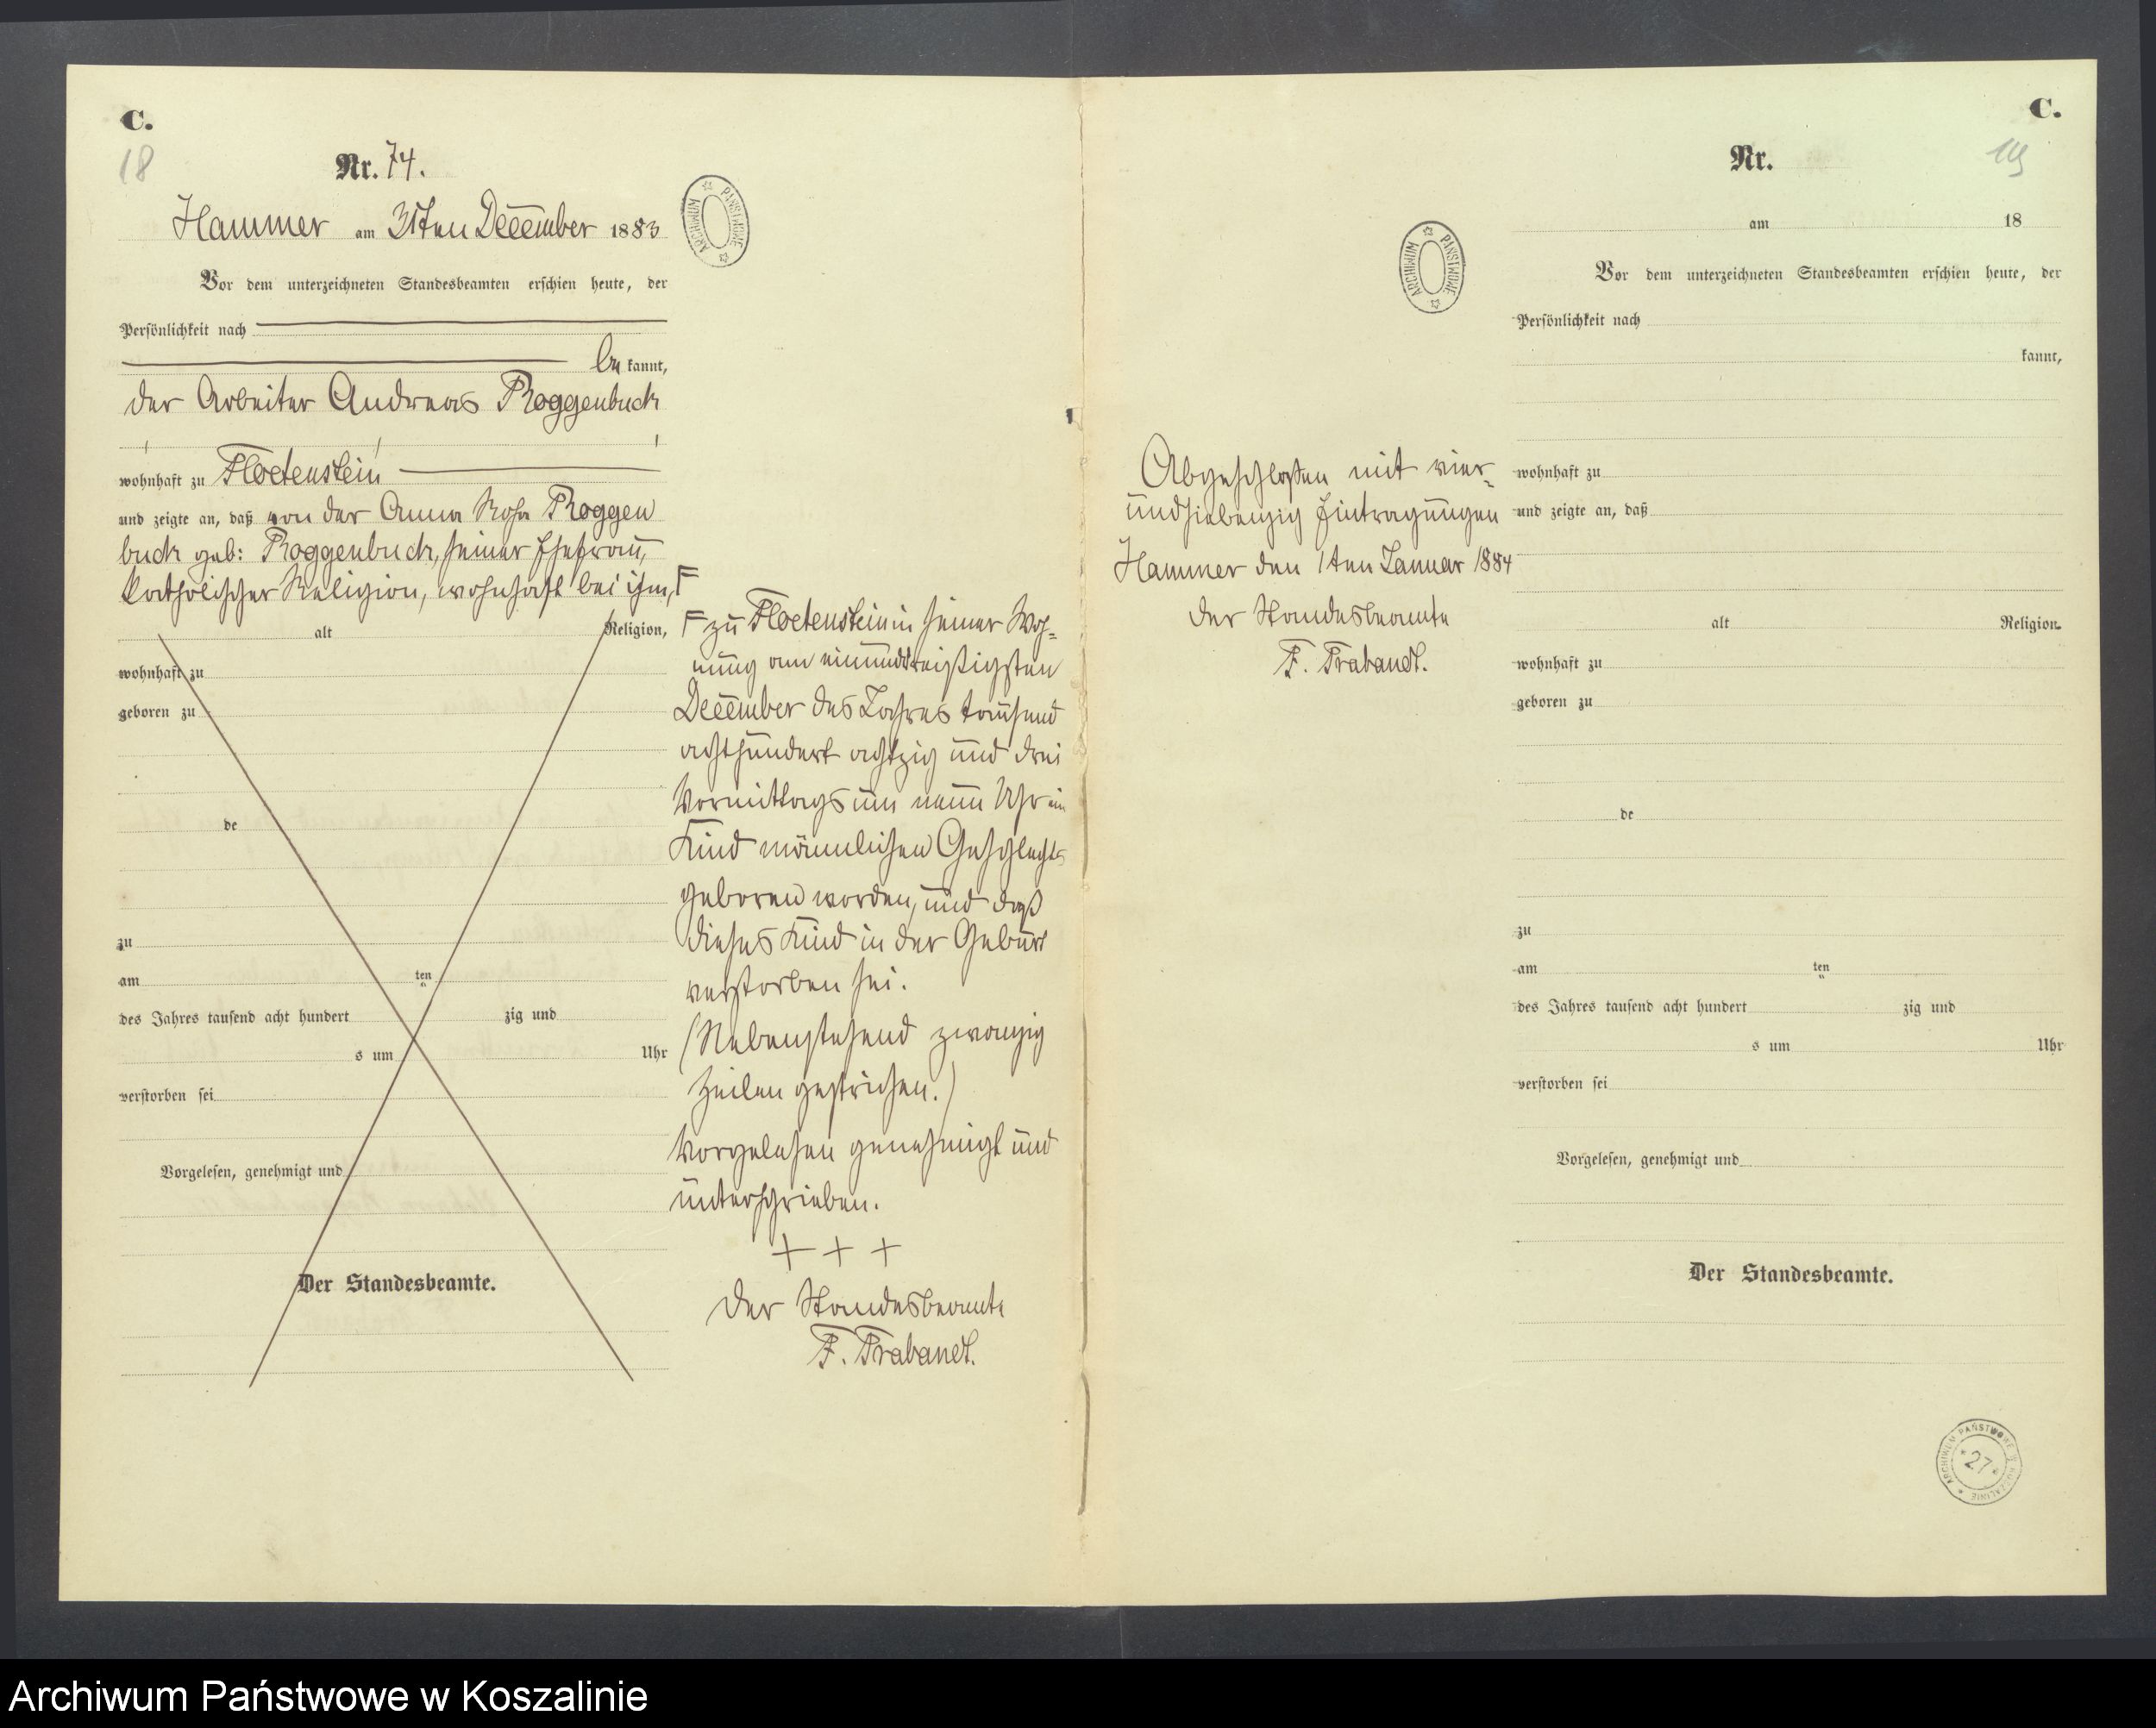 C.
18
Nr. 74.
Hammer am 31ten December 1883
Vor dem unterzeichneten Standesbeamten erschien heute, der
Persönlichkeit nach
be kannt,
der Arbeiter Andreas Roggenbuck
wohnhaft zu Floetenstein
und zeigte an, daß von der Anna Rosa Roggen
buck geb: Roggenbuck, seiner Ehefrau,
katholischer Religion, wohnhaft bei ihm, F
alt Religion,
wohnhaft zu
geboren zu
de
zu
am ten
des Jahres tausend acht hundert zig und
s um Uhr
verstorben sei
Vorgelesen, genehmigt und
Der Standesbeamte.
ARCHIWUM PAŃSTWOWE
F zu Floetenstein in seiner Woh-
nung am einunddreißigsten
December des Jahres tausend
achthundert achtzig und drei
Vormittags um neun Uhr ein
Kind männlichen Geschlechts
geboren worden, und daß
dieses Kind in der Geburt
verstorben sei.
(Nebenstehend zwanzig
Zeilen gestrichen.)
Vorgelesen genehmigt und
unterschrieben.
+ + +
Der Standesbeamte
F. Trabandt.
ARCHIWUM PAŃSTWOWE
Abgeschlossen mit vier-
undsiebenzig Eintragungen
Hammer den 1ten Januar 1884
Der Standesbeamte
F. Trabandt.
C.
19
Nr.
am 18
Vor dem unterzeichneten Standesbeamten erschien heute, der
Persönlichkeit nach
kannt,
wohnhaft zu
und zeigte an, daß
alt Religion
wohnhaft zu
geboren zu
de
zu
am ten
des Jahres tausend acht hundert zig und
s um Uhr
verstorben sei
Vorgelesen, genehmigt und
Der Standesbeamte.
ARCHIWUM PAŃSTWOWE W KOSZALINIE
27
Archiwum Państwowe w Koszalinie